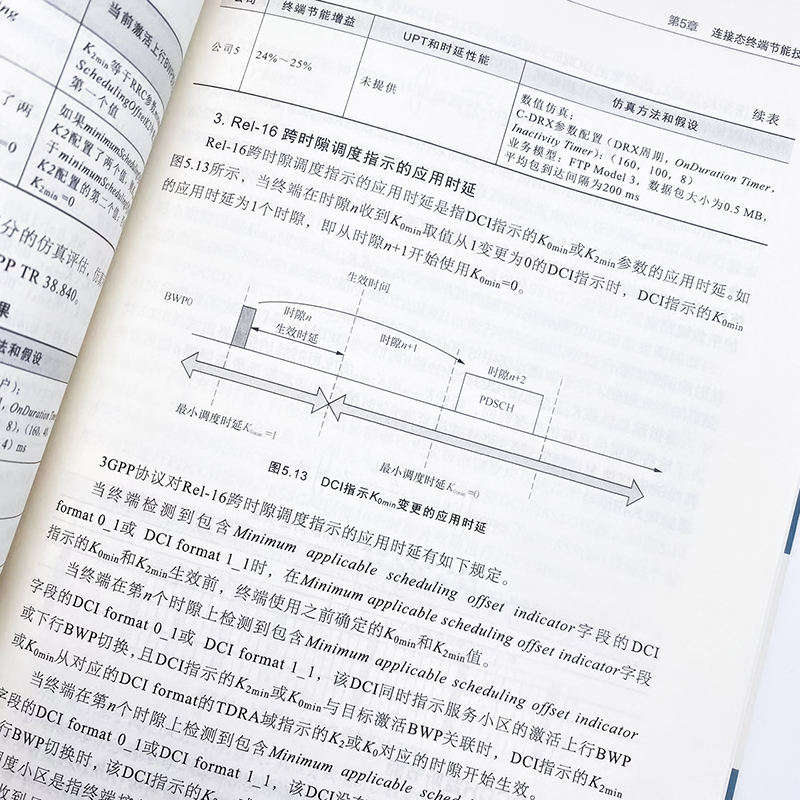 第5章 连接态终端节能技
续表
公司
终端节能增益
UPT和时延性能
仿真方法和假设
公司5
24%~25%
未提供
数值仿真；
C-DRX参数配置（DRX周期，OnDuration Timer，
Inactivity Timer）：(160，100，8)
业务模型：FTP Model 3，数据包大小为0.5 MB，
平均包到达间隔为200 ms
3. Rel-16 跨时隙调度指示的应用时延
Rel-16跨时隙调度指示的应用时延是指DCI指示的K0min或K2min参数的应用时延。如
图5.13所示，当终端在时隙n收到K0min取值从1变更为0的DCI指示时，DCI指示的K0min
的应用时延为1个时隙，即从时隙n+1开始使用K0min=0。
生效时间
BWP0
时隙n
生效时延
时隙n+1
时隙n+2
PDSCH
最小调度时延K0min=1
最小调度时延K0min=0
图5.13 DCI指示K0min变更的应用时延
3GPP协议对Rel-16跨时隙调度指示的应用时延有如下规定。
当终端检测到包含Minimum applicable scheduling offset indicator字段的DCI
format 0_1或 DCI format 1_1时，在Minimum applicable scheduling offset indicator字段
指示的K0min和K2min生效前，终端使用之前确定的K0min和K2min值。
当终端在第n个时隙上检测到包含Minimum applicable scheduling offset indicator
字段的DCI format 0_1或 DCI format 1_1，该DCI同时指示服务小区的激活上行BWP
或下行BWP切换，且DCI指示的K2min或K0min与目标激活BWP关联时，DCI指示的K2min
或K0min从对应的DCI format的TDRA域指示的K2或K0对应的时隙开始生效。
当终端在第n个时隙上检测到包含Minimum applicable scheduling offset indicator
字段的DCI format 0_1或DCI format 1_1，该DCI没有
行BWP切换时，该DCI指示的K
度小区是指终端
当前激活上行BWP
K2min等于RRC参数
SchedulingOffsetK2
第一个值
如果minimumScheduling
K2配置了两个值
于minimumScheduling
K2配置的第二个值
K2min=0
了两
=0
分的仿真评估，仿真
PP TR 38.840。
果
法和假设
户）；
，OnDuration Tim
8），(160，40
4）ms